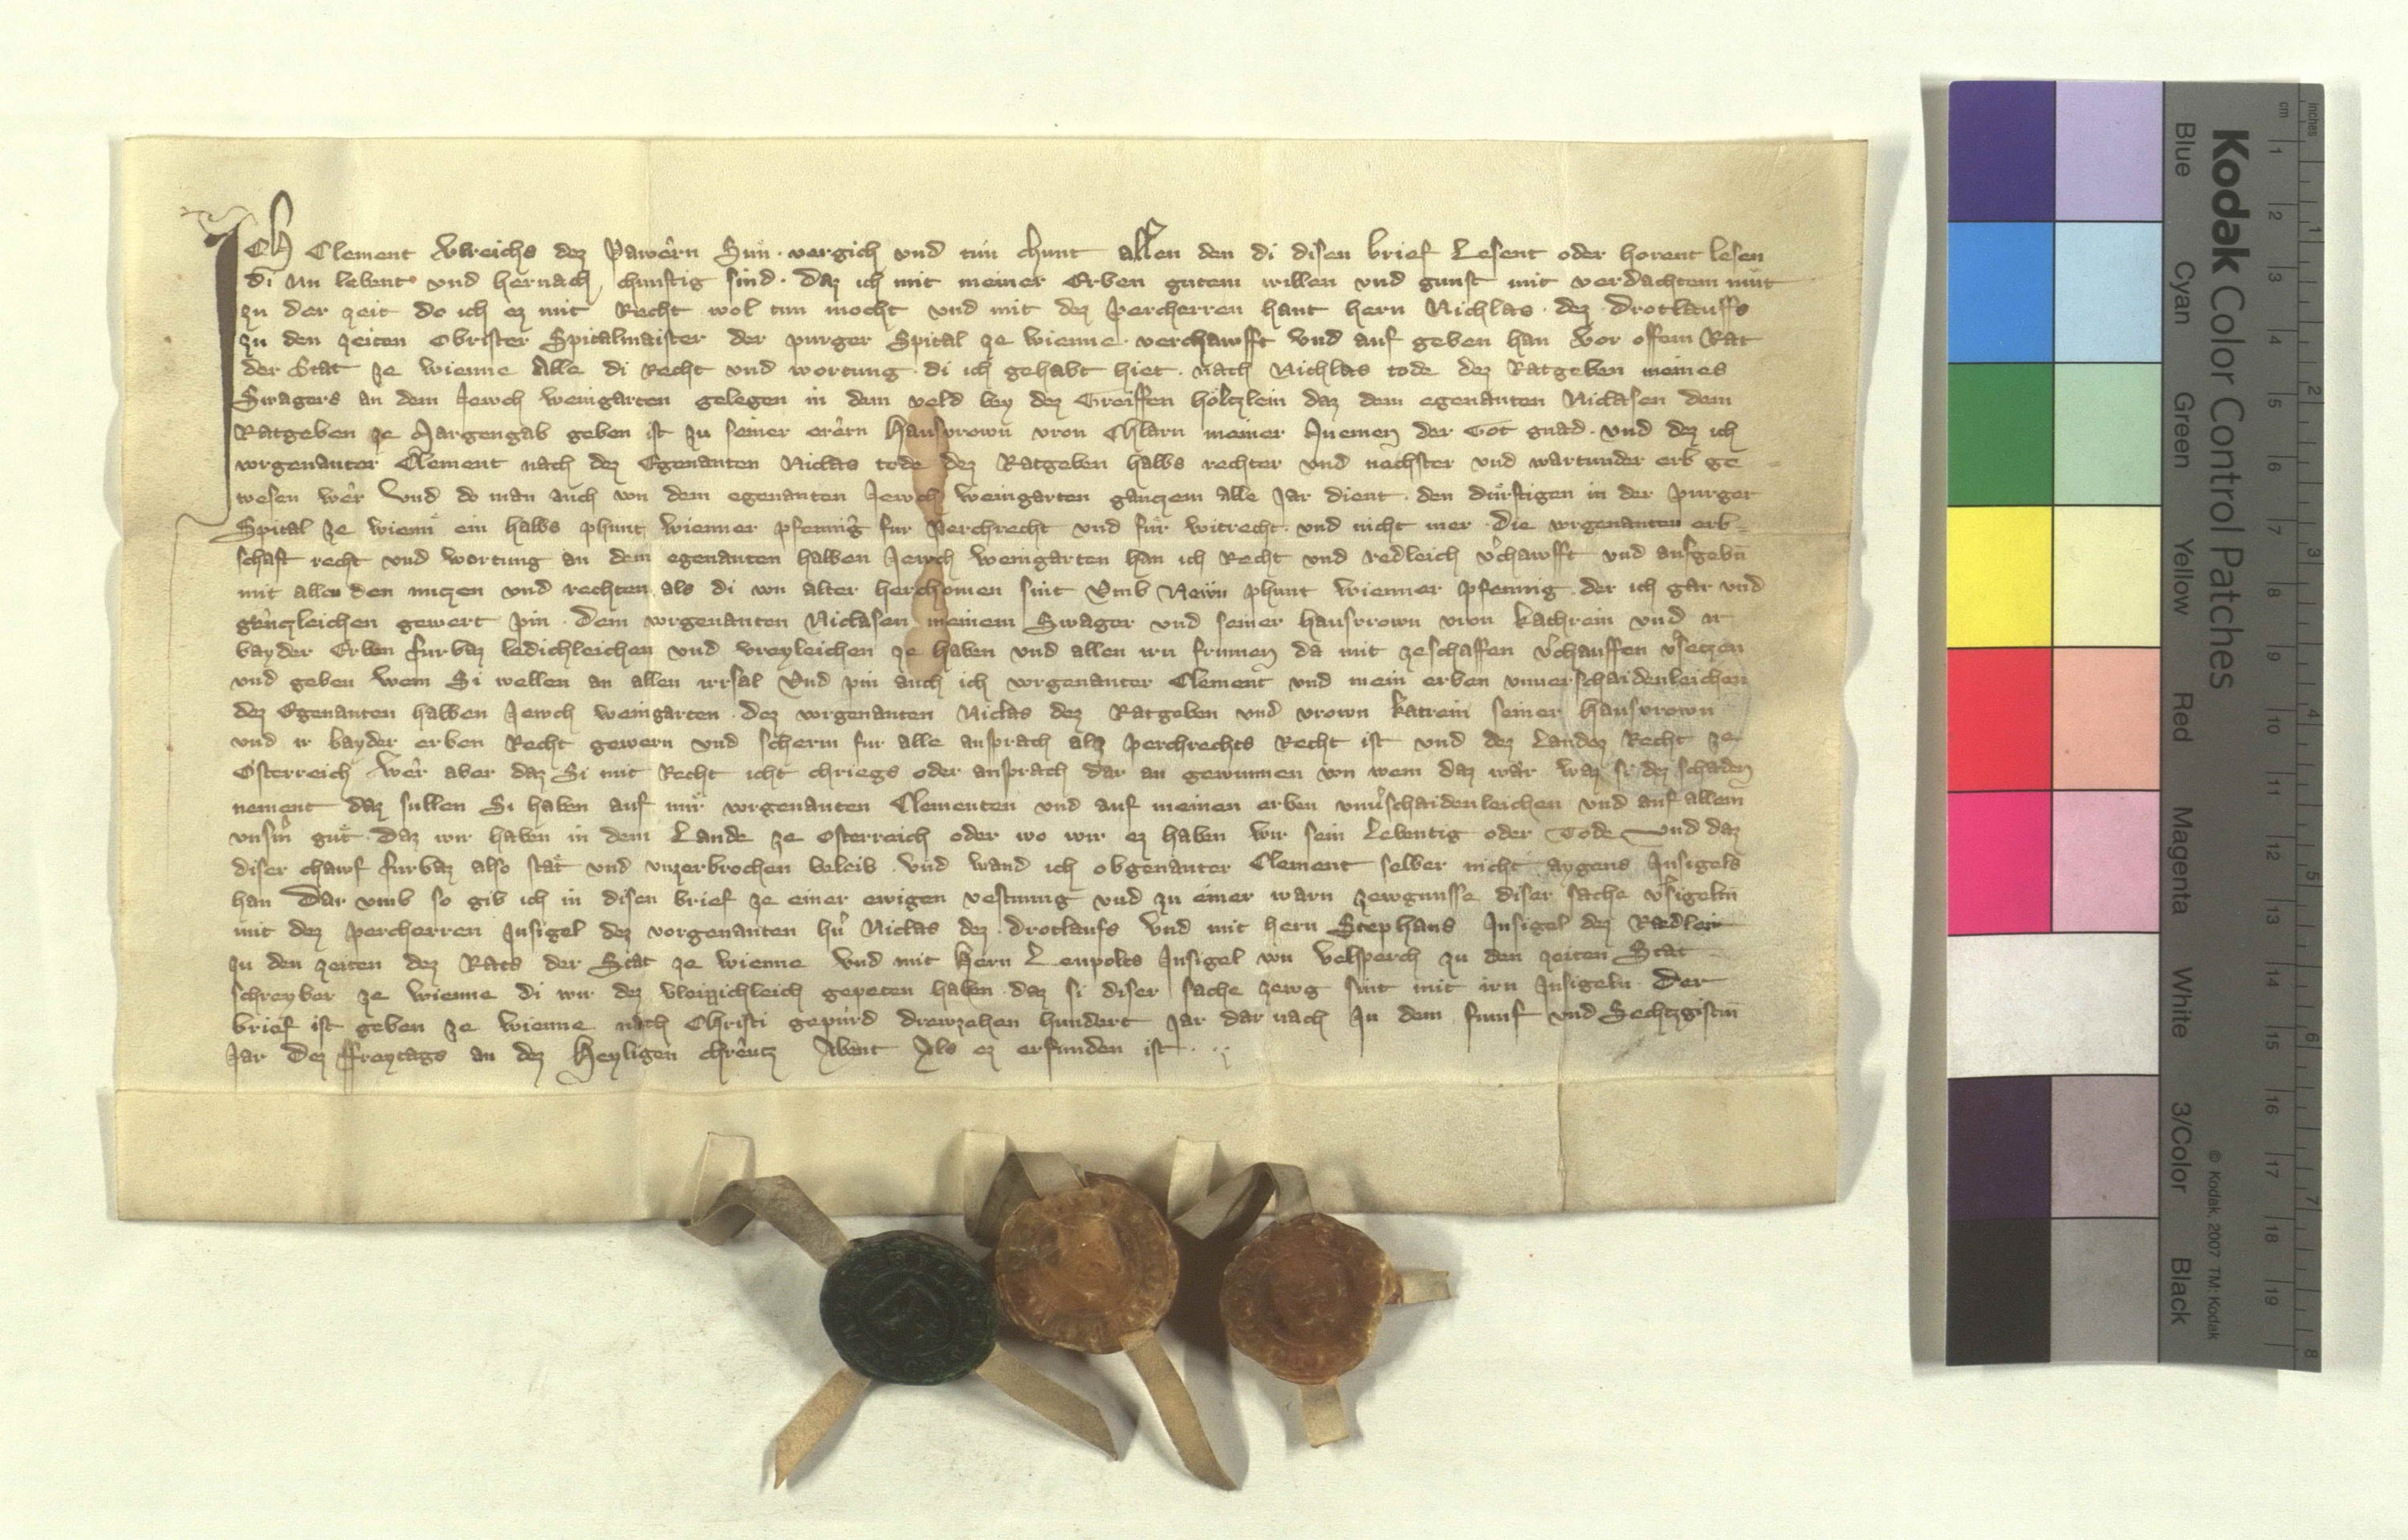 ICH Clement Vlreichs dez Pawern Sun · vergich vnd tun chunt allen den di disen brief Lesent oder horent lesen
di nu lebent vnd hernach chunftig sind · daz ich mit meiner Erben gutem willen vnd gunst mit verdachtem mut
zu der zeit do ich ez mit Recht wol tun mocht vnd mit dez percherren hant hern Nichlas · dez drotlauffs
zu den zeiten Obrister Spitalmaister der purger Spital ze wienne · verchawfft vnd auf geben han vor offem Rat
der Stat ze wienne Alle di Recht vnd wartung · di ich gehabt hiet · nach Nichlas tode dez Ratgeben meines
Swagers an dem Jewch weingarten gelegen in dem veld bey dez Greiffen holtzlein daz dem egenanten Niclasen dem
Ratgeben ze Margengab geben ist zu seiner erern Hausvrown vron Chlarn meiner Muemen der Got gnad · vnd dez ich
vorgenanter Clement nach dez Egenanten Niclas tode dez Ratgeben halbs rechter vnd nechster vnd wartunder erb ge
wesen wer Vnd do man auch von dem egenanten Jewch weingarten gantzem alle Jar dient · den durftigen in der purger
Spital ze wienn ein halbs phunt wienner pfennig fur Perchrecht vnd fur voitrecht · vnd nicht mer · Die vorgenanten erb
schaft recht vnd wartung an dem egenanten halben Jewch weingarten han ich Recht vnd redleich v'chawfft vnd aufgebn
mit allen den nutzen vnd rechten als di von alter herchomen sint Vmb Newn phunt wienner pfennig · der ich gar vnd
gentzleichen gewert pin · dem vorgenanten Niclasen meinem Swager vnd seiner hausvrown vron kathrein vnd ir
bayder Erben furbaz ledichleichen vnd vreyleichen ze haben vnd allen irn frumen da mit zeschaffen v'chauffen v'setzen
vnd geben wem Si wellen an allen irrsal Vnd pin auch ich vorgenanter Clement vnd mein erben vnuerschaidenleichen
dez Egenanten halben Jewch weingarten · dez vorgenanten Niclas dez Ratgeben vnd vrown katrein seiner hausvrown
vnd ir bayder erben Recht gewern vnd scherm fur alle ansprach alz perchrechts Recht ist vnd dez Landez Recht ze
Osterreich Wer aber daz Si mit Recht icht chriegs oder ansprach dar an gewunnen von wem daz wer waz si dez schaden
nement daz sullen Si haben auf mir vorgenanten Clementen vnd auf meinen erben vnu'schaidenleichen vnd auf allem
vnsm gut · daz wir haben in dem Lande ze Osterreich oder wo wir ez haben wir sein Lebentig oder Tode Vnd daz
diser chawf furbaz also stat vnd vnzerbrochen beleib vnd wand ich obgenanter Clement selber nicht aygens Insigels
han Dar vmb so gib ich in disen brief ze einer ewigen vestnung vnd zu einer warn zewgnusse diser sache v'sigeltn
mit dez percherren Insigel dez vorgenanten hn Niclas dez drotlaufs Vnd mit hern Stephans Insigel dez Redler
zu den zeiten dez Rats der Stat ze wienne Vnd mit hern Leupolts Insigel von Velsperch zu den zeiten Stat
schreyber ze wienne di wir dez vleizzichleich gepeten haben daz si diser sache zewg sint mit irn Insigeln · Der
brief ist geben ze wienne nach Christi gepurd drewzehen hundert Jar dar nach In dem funf vnd Sechtzgistm
Jar Dez ffreytags an dez Heyligen chreutz Abent Als ez erfunden ist
Kodak Color Control Patches
Blue Cyan Green Yellow Red Magenta White 3/Color Black
© Kodak, 2007 TM: Kodak
cm 1 2 3 4 5 6 7 8 9 10 11 12 13 14 15 16 17 18 19
inches 1 2 3 4 5 6 7 8